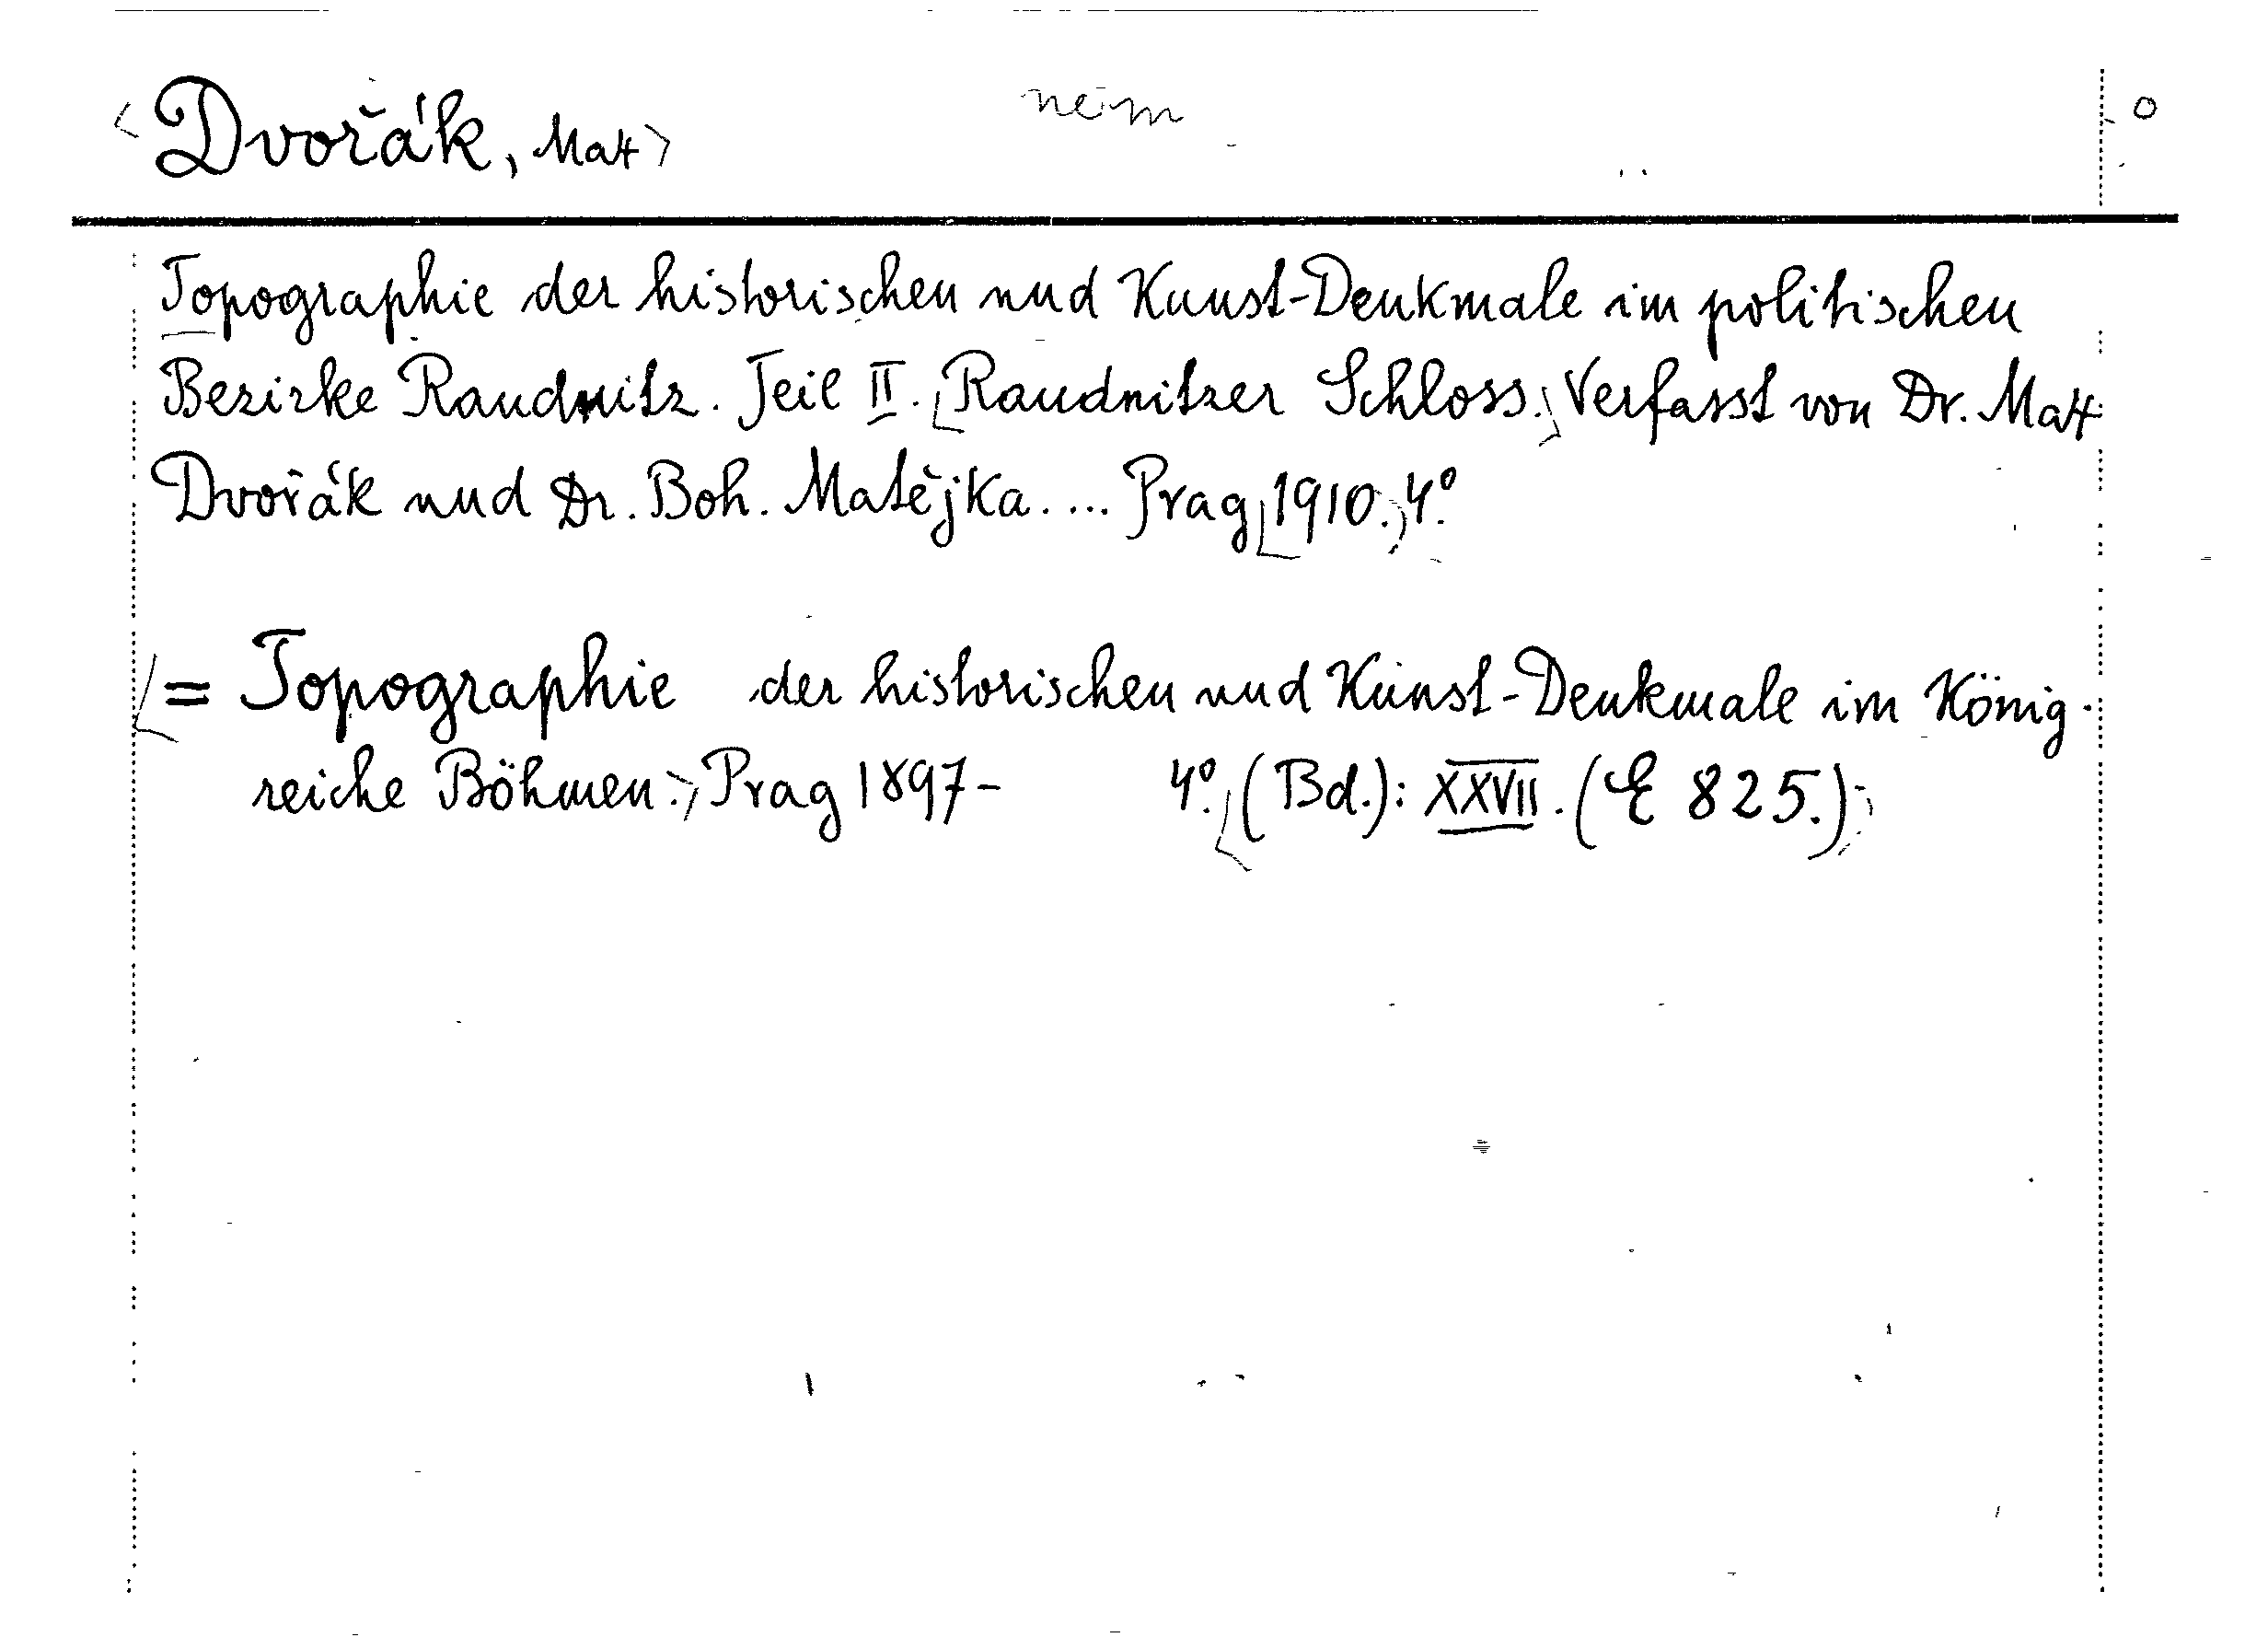 <Dvořák, Max>
neim
o
Topographie der historischen und Kunst-Denkmale im politischen
Bezirke Raudnitz. Teil II. [Raudnitzer Schloss.] Verfasst von Dr. Max
Dvořák und Dr. Boh. Matějka.... Prag [1910.] 4°.
[= Topographie der historischen und Kunst-Denkmale im König-
reiche Böhmen.] Prag 1897- 4°. [(Bd.): XXVII. (E 825.)]